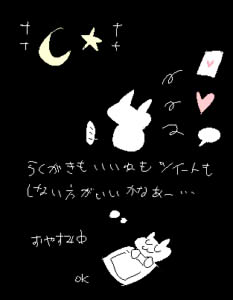 らくがきもいいねも ツイートも
しない方がいいかなあー…
おやすみ中
OK